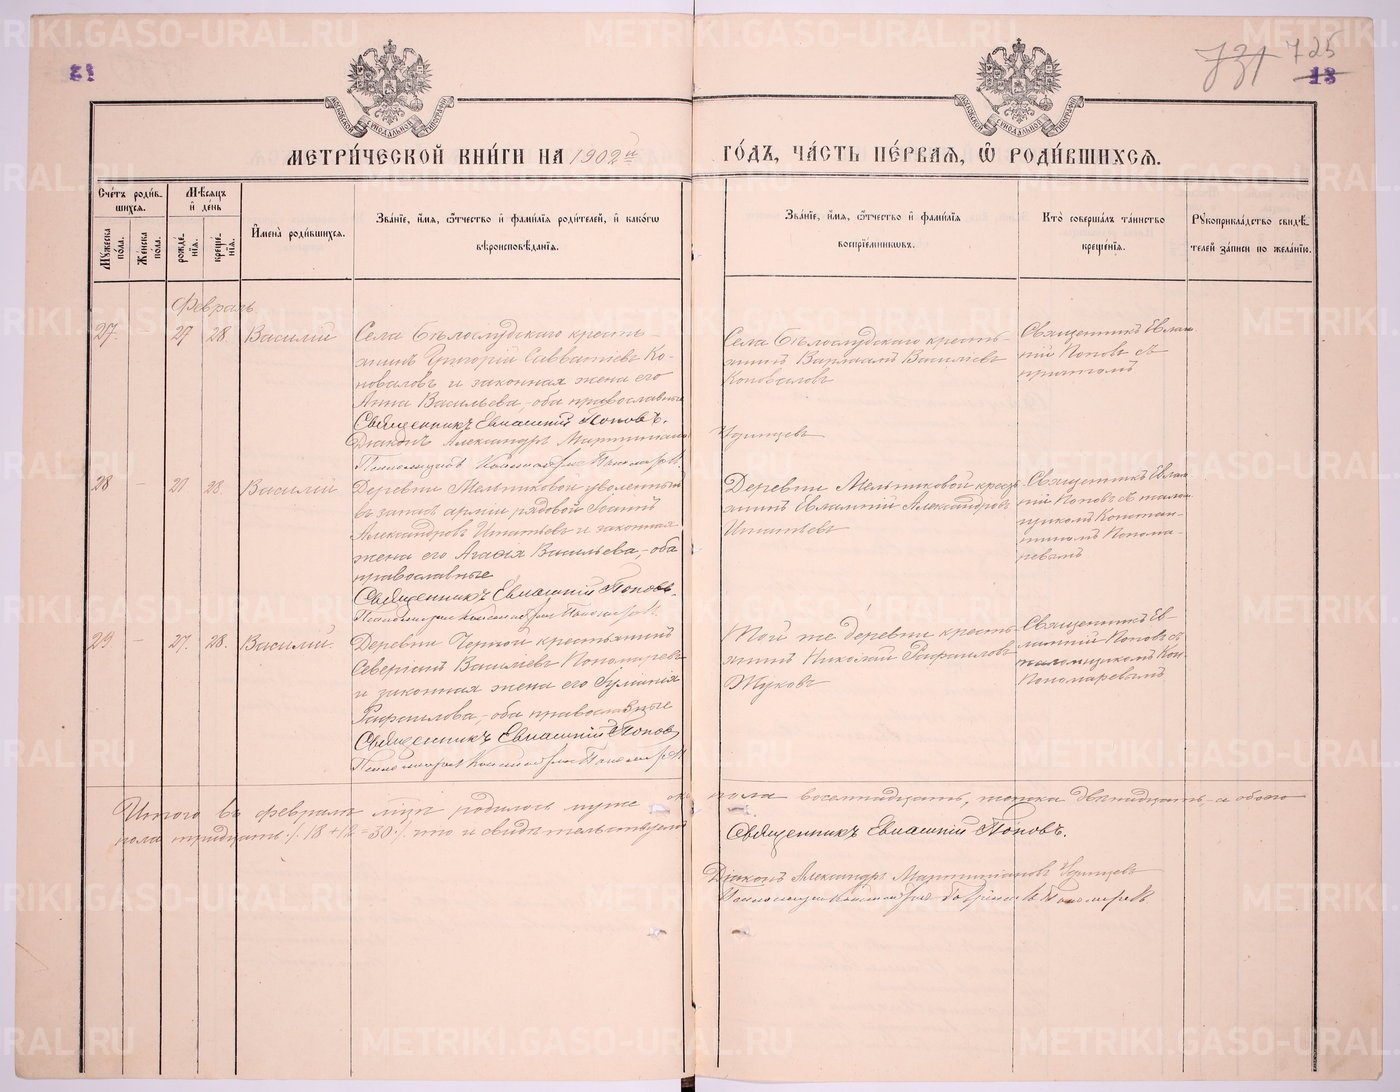 731 725
13
МЕТРИ́ЧЕСКОЙ КНИ́ГИ НА 1902й ГО́ДЪ, ЧА́СТЬ ПЕ́РВАѦ, Ѡ РОДИ́ВШИХСѦ.
Сче́тъ роди́в-
шихсѧ.
Мꙋ́жеска по́ла.
Же́нска по́ла.
Мѣ́сѧцъ и де́нь
рожде́-
нїѧ.
креще́-
нїѧ.
Имена̀ роди́вшихсѧ.
Зва́нїе, и́мѧ, ѻ́тчество и фами́лїѧ роди́телей, и како́гѡ
вѣроисповѣ́данїѧ.
Зва́нїе, и́мѧ, ѻ́тчество и фами́лїѧ
воспрїе́мникѡвъ.
Кто̀ соверша́лъ та́инство
креще́нїѧ.
Рꙋкоприкла́дство свидѣ́-
телей за́писи по жела́нїю.
Февраль.
27. - 27 28 Василій
Села Бѣлослудскаго кресть-
янинъ Григорій Савватіевъ Ко-
новаловъ и законная жена его
Анна Васильева, оба православные
Священникъ Евлампій Поповъ.
Діаконъ Александръ Мартиніановъ Удинцевъ
Села Бѣлослудскаго кресть-
янинъ Варлаамъ Васильевъ
Коноваловъ
Священникъ Евлам-
пій Поповъ съ
причтомъ
28 - 27 28 Василій
Деревни Мельниковой уволенный
въ запасъ арміи рядовой Іоаннъ
Александровъ Игнатьевъ и законная
жена его Агафія Васильева, оба
православные
Священникъ Евлампій Поповъ.
Деревни Мельниковой кресть-
янинъ Евлампій Александровъ
Игнатьевъ
Священникъ Евлам-
пій Поповъ съ псалом-
щикомъ Констан-
тиномъ Понома-
ревымъ
29 - 27. 28. Василій.
Деревни Черной крестьянинъ
Северіанъ Васильевъ Пономаревъ
и законная жена его Іуліанія
Рафаилова, оба православные
Священникъ Евлампій Поповъ
Той же деревни кресть-
янинъ Николай Рафаиловъ
Жуковъ
Священникъ Ев-
лампій Поповъ съ
псаломщикомъ Кон.
Пономаревымъ
Итого въ февралѣ мцѣ родилось муже ска пола восемнадцать, женска двѣнадцать, а обоего
пола тридцать /. 18+12=30 /. что и свидѣтельствуемъ
Священникъ Евлампій Поповъ.
Діаконъ Александръ Мартиніановъ Удинцевъ
METRIKI.GASO-URAL.RU